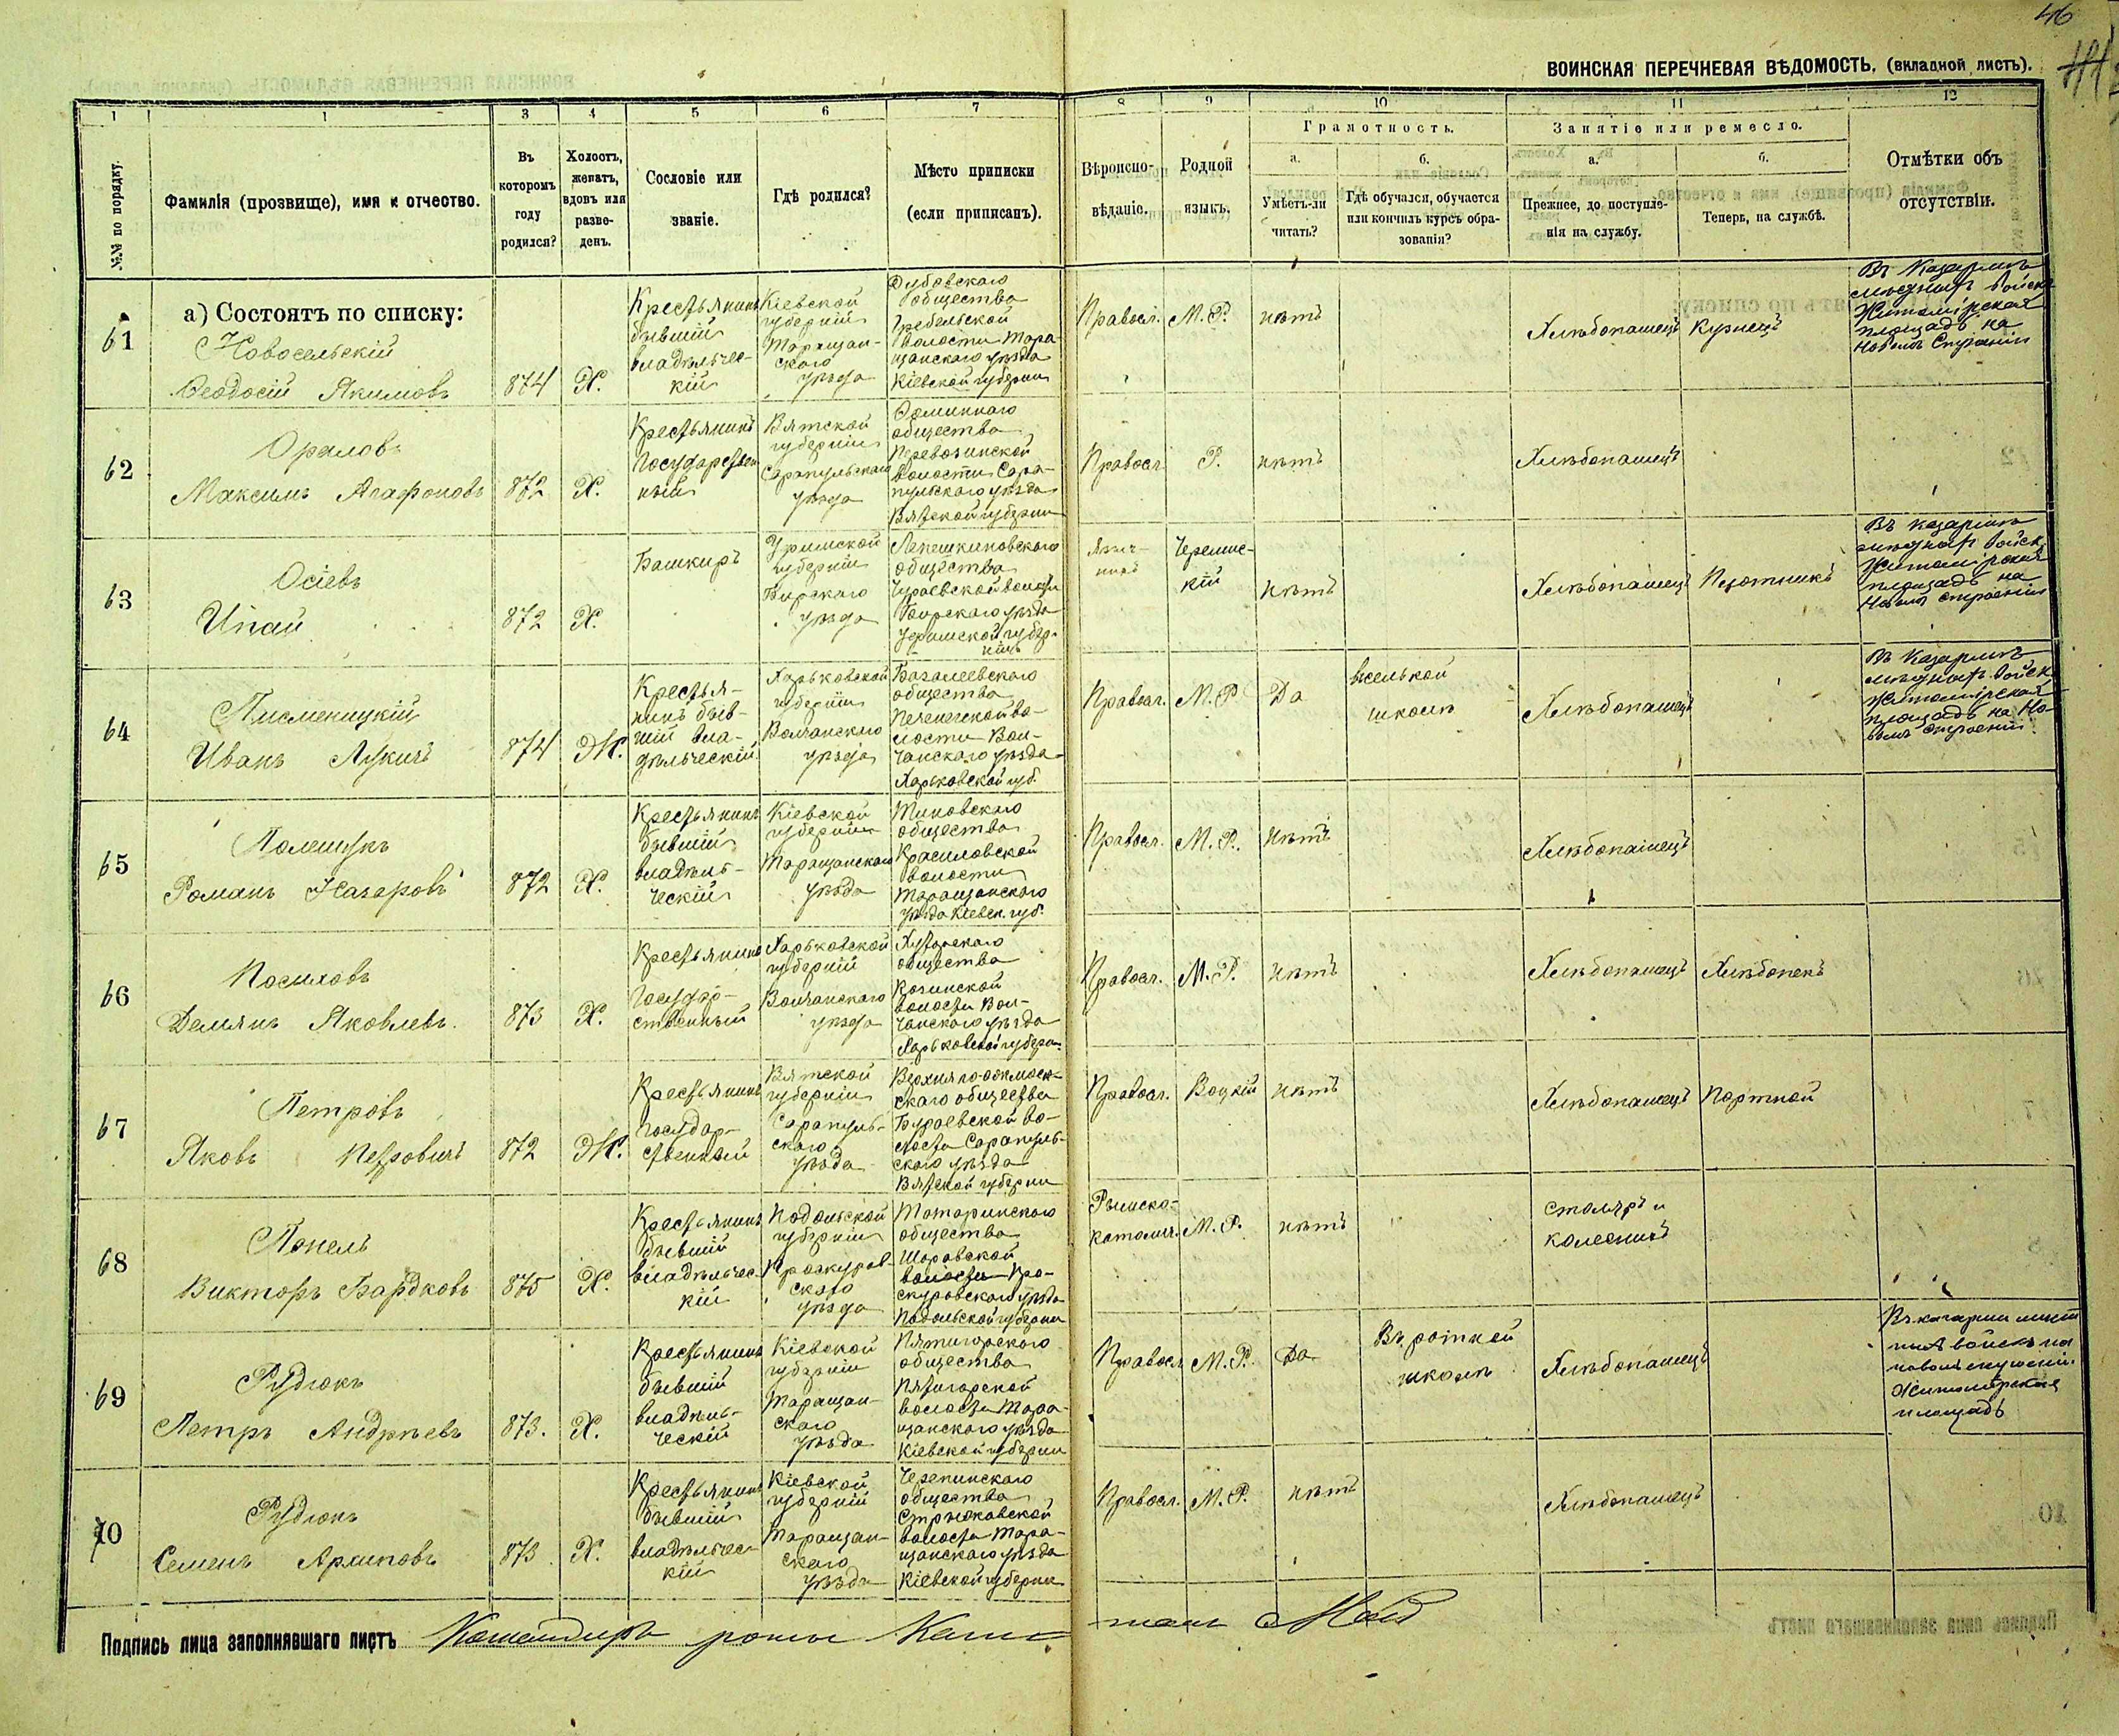 46
ВОИНСКАЯ ПЕРЕЧНЕВАЯ ВѢДОМОСТЬ. (вкладной листъ).
1 1 3 4 5 6 7 8 9 10 11 12
№№ по порядку.
Фамилія (прозвище), имя и отчество.
Въ которомъ году родился?
Холостъ, женатъ, вдовъ или разведенъ.
Сословіе или званіе.
Гдѣ родился?
Мѣсто приписки (если приписанъ).
Вѣроисповѣданіе.
Родной языкъ.
Грамотность.
а. Умѣетъ-ли читать?
б. Гдѣ обучался, обучается или кончилъ курсъ образованія?
Занятіе или ремесло.
а. Прежнее, до поступленія на службу.
б. Теперь, на службѣ.
Отмѣтки объ отсутствіи.
а) Состоятъ по списку:
61
Новосельскій
Ѳеодосій Якимовъ
874 Х.
Крестьянинъ
бывшій
владѣльчес-
кій
Кіевской
губерніи
Таращан-
скаго
уѣзда
Дубовскаго
общества
Гребельской
волости Тара-
щанскаго уѣзда
Кіевской губерніи
Правосл. М. Р. нѣтъ
Хлѣбопашецъ Кузнецъ
Въ Казармѣ
мѣстныхъ войскъ
Житомірская
площадь на
Новомъ Строеніи
62
Ораловъ
Максимъ Агафоновъ
872 Х.
Крестьянинъ
Государствен
ный
Вятской
губерніи
Сарапульскаго
уѣзда
общества
Перевозинской
волости Сара-
пульскаго уѣзда
Вятской губерніи
Правосл Р. нѣтъ
Хлѣбопашецъ
63
Осіевъ
Ипай
872 Х.
Башкиръ
Уфимской
губерніи
Бирскаго
уѣзда
Лепешкиновскаго
общества
Чураевской волости
Бирскаго уѣзда
Уфимской губер-
ніи
Языч-
никъ
Черемис-
кій
нѣтъ
Хлѣбопашецъ Плотникъ
Въ казармѣ
мѣстных войск
Житомірская
площадь на
Новомъ строеніи
64
Писменицкій
Иванъ Лукичъ
874 Ж.
Крестья-
нинъ быв-
шій вла-
дѣльческій
Харьковской
губерніи
Волчанскаго
уѣзда
Базалеевскаго
общества
Печенежской во-
лости Вол-
чанскаго уѣзда
Харьковской губ.
Правосл. М. Р Да
в сельской
школѣ
Хлѣбопашецъ
Въ Казармѣ
мѣстныхъ войск
Житомірская
площадь на Но-
вомъ строеніи
65
Полещукъ
Романъ Назаровъ
872 Х.
Крестьянинъ
бывшій
владѣль-
ческій
Кіевской
губерніи
Таращанскаго
уѣзда
Тиновскаго
общества
Красиловской
волости
Таращанскаго
уѣзда Кіевск. губ.
Правосл. М. Р. нѣтъ
Хлѣбопашецъ
66
Посиховъ
Демянъ Яковлевъ.
873 Х.
Крестьянинъ
Государ-
ственный
Харьковской
губерніи
Волчанскаго
уѣзда
Хуторскаго
общества
волости Вол-
чанскаго уѣзда
Харьковской губерн.
Правосл. М. Р. нѣтъ
Хлѣбопашецъ Хлѣбопекъ
67
Петровъ
Яковъ Петровичъ
872 Ж.
Крестьянинъ
Государ-
ственный
Вятской
губерніи
Сарапуль-
скаго
уѣзда
скаго общества
Бураевской во-
лости Сарапуль-
скаго уѣзда
Вятской губерніи
Правосл. Воцкій нѣтъ
Хлѣбопашецъ Портной
68
Попель
Викторъ Бардковъ
875 Х.
Крестьянинъ
бывшій
владѣльчес-
кій
Подольской
губерніи
Проскуров-
скаго
уѣзда
Татаринскаго
общества
Шаровской
волости Про-
скуровскаго уѣзда
Подольской губерніи
Римско-
католич. М. Р. нѣтъ
Столяръ и
колесникъ
69
Рудюкъ
Петръ Андрѣевъ
873. Х.
Крестьянинъ
бывшій
владѣль-
ческій
Кіевской
губерніи
Таращан-
скаго
уѣзда
Пятигорскаго
общества
Пятигорской
волости Тара-
щанскаго уѣзда
Кіевской губерніи
Правосл М. Р. Да
Въ ротной
школѣ
Хлѣбопашецъ
Въ казармѣ мѣст
ныхъ войскъ на
новомъ строеніи.
Житомирская
площадь
70
Рудюкъ
Семенъ Архиповъ
873 Х.
Крестьянинъ
бывшій
владѣльчес-
кій
Кіевской
губерніи
Таращан-
скаго
уѣзда
Черепинскаго
общества
Стрижавской
волости Тара-
щанскаго уѣзда
Кіевской губерніи
Правосл. М. Р. нѣтъ
Хлѣбопашецъ
Подпись лица заполнявшаго листъ Командиръ роты Капитанъ